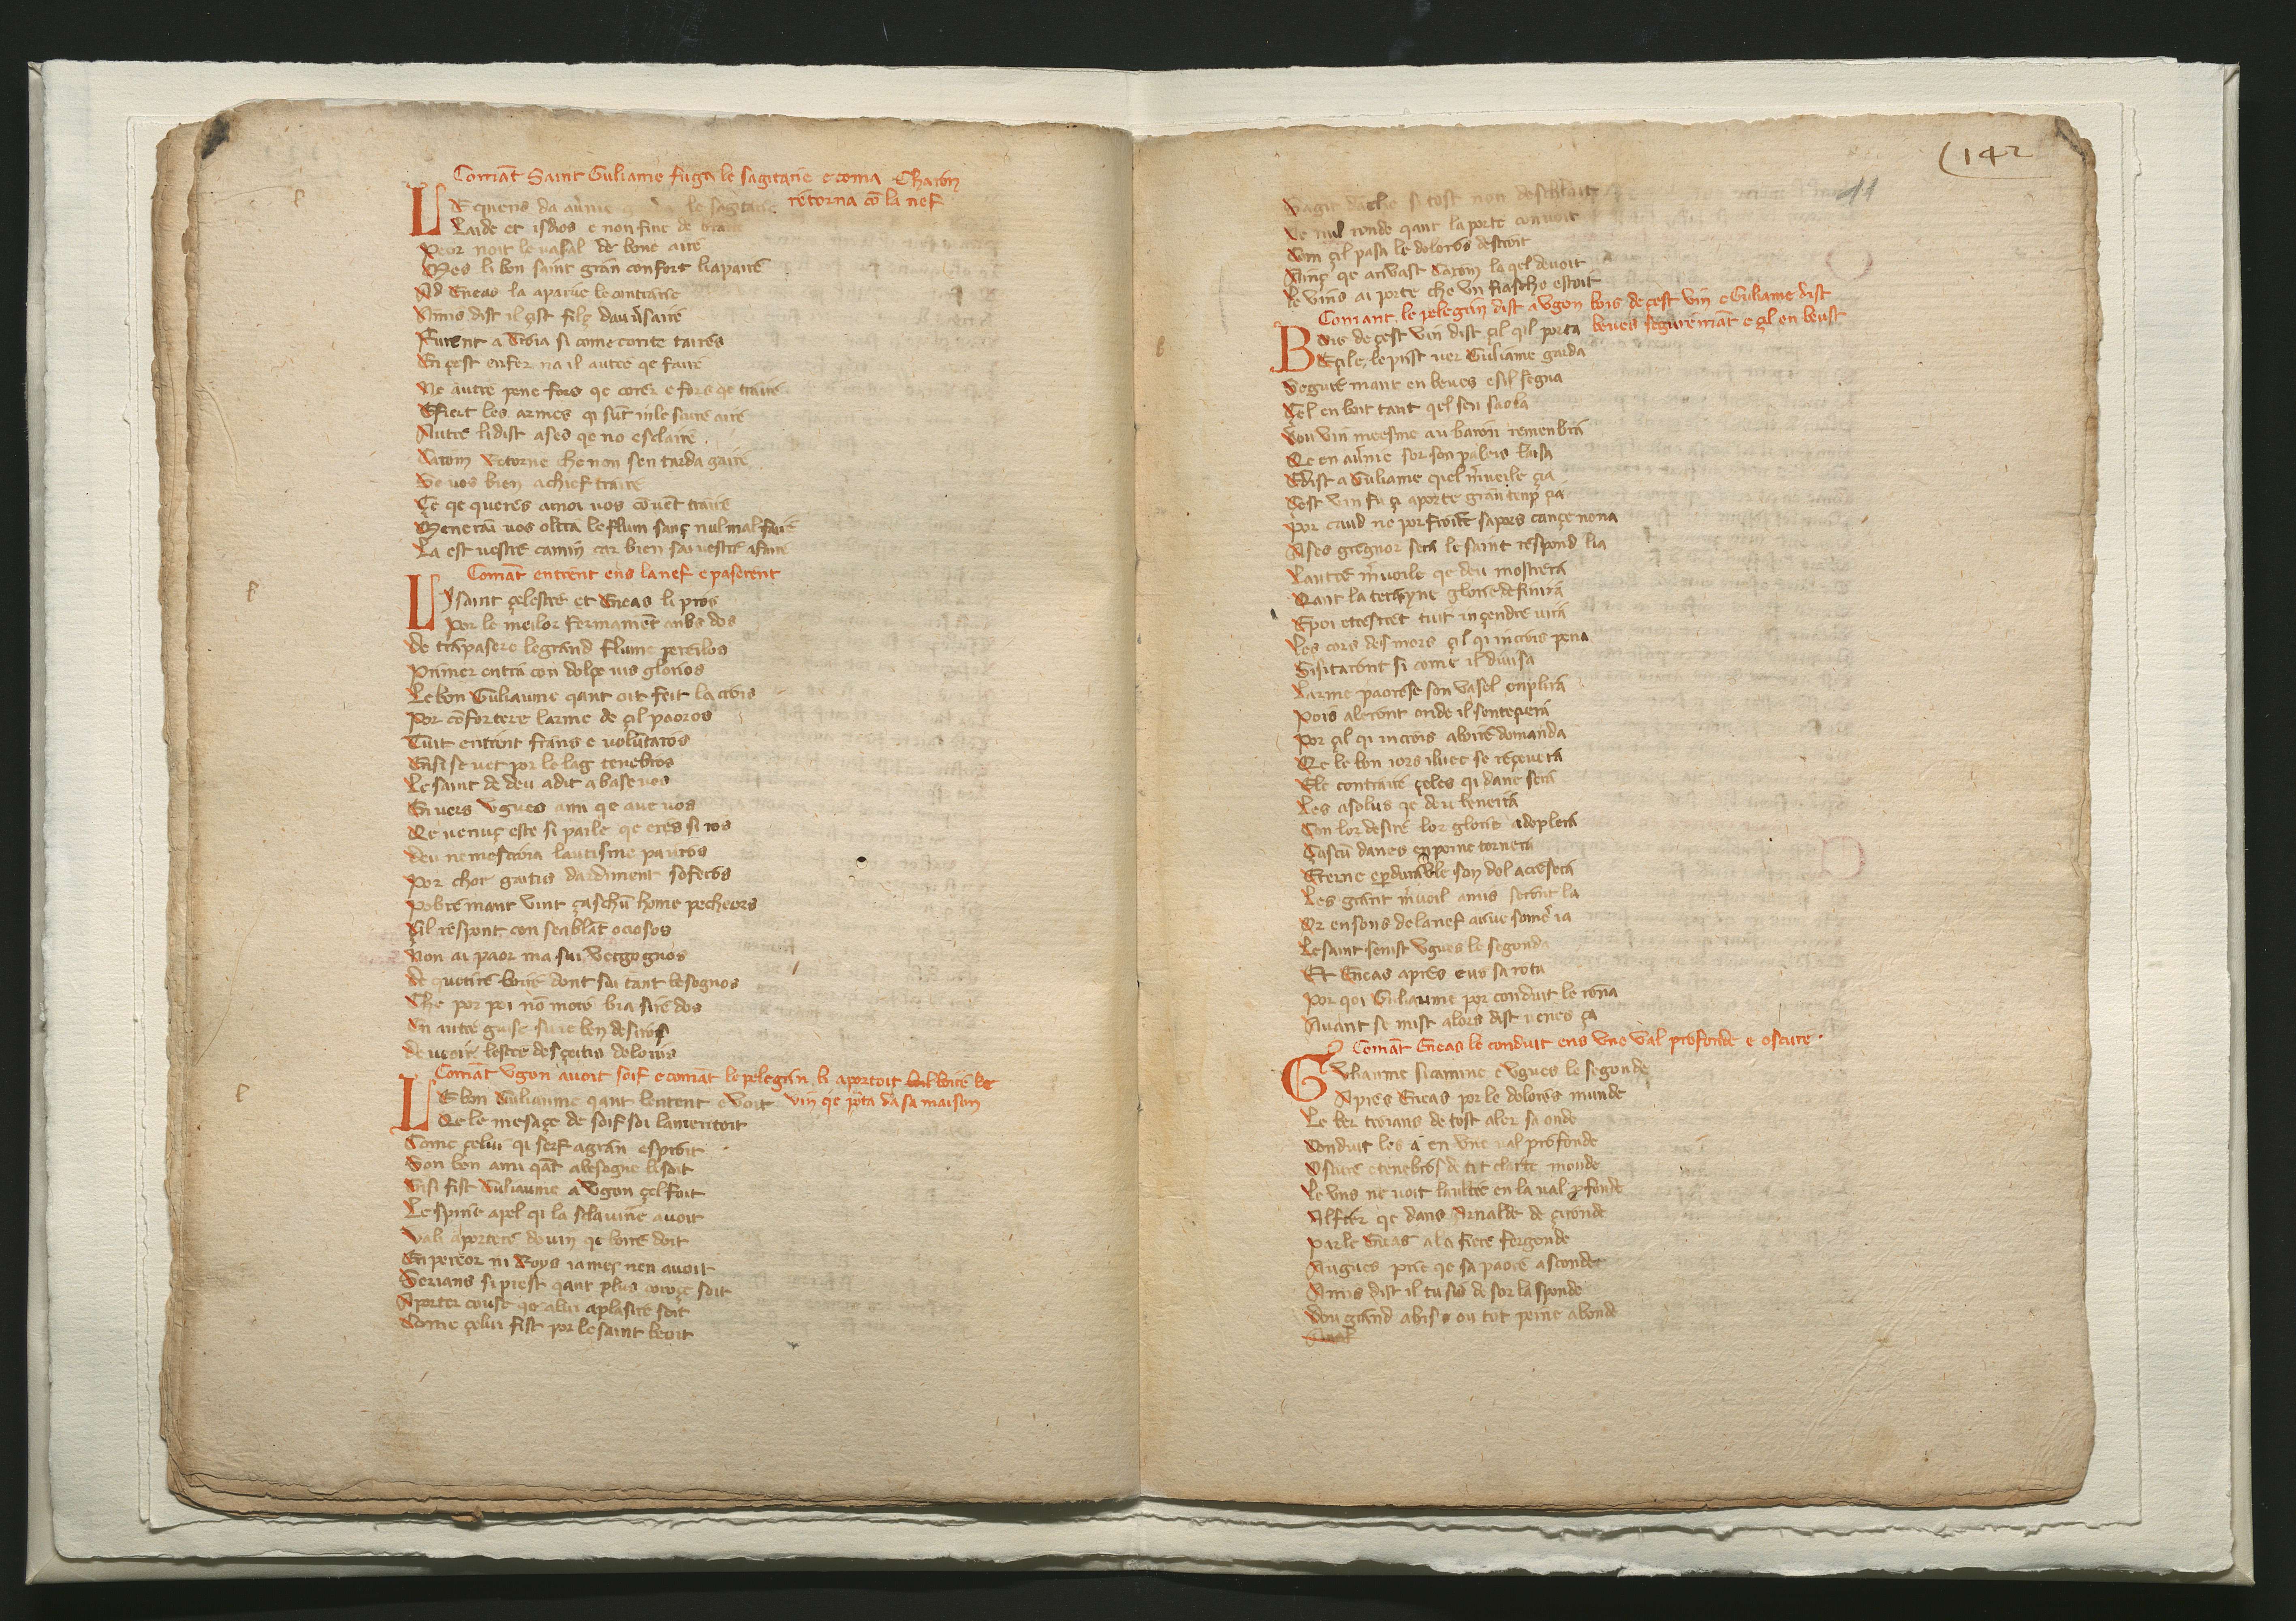 Comāt Saint Guliame fuga le sagitarie e coma Charon
retorna cō la nef
L E quens da auvne le sagitarie
Laide et isdios e non fine de traire
Peor noit le vasal de bone aire
Mes li bon saint gran confort li apaire
Ad Eneas la aparue le contraire
Amis dist il cist filz dauersaire
Furent a Tebia si come conte taires
En cest enfer na il autre qe faire
Ne autre pene fors qe corer e fors qe traire
E fiert les armes qi sūt in le saire aire
Autre li dist ases qe no esclaire
Carom retorne che non sen tarda gaire
De vos bien a chief traire
Çe qe queres amoi vos cōuēt traire
Menerai vos oltra le flum sanç nul mal faire
La est vestre camin car bien sai vestre afaire
Comāt entrent ens la nef e paserent
L y saint çelestre et Eneas li pros
Por le meilor fermamēt anbs dos
De trapasere le grand flume pereilos
Primer entra con dolçe vis glorios
Le bon Guliaume qant oit feit la crois
Por cōfortere larme de çil paoros
Tuit entrent frans e voluntaros
Ensi se vet por le lag tenebros
Le saint de deu a dit a base vos
En vers Vgues ami qe aue vos
Qe venuç este si parle qe eres si ros
Deu nemostroia lautisme pauros
Por choe gratis dardiment sofretos
Pobremant vint çaschū home pecheors
Cil respont con senblāt ociosos
Non ai paor ma sui vergognos
De querire boire dont sui tant besognos
Che por poi nō more bra sire dos
En autre guise sui e ben desiros
De veoir lestre des çeitis dolorus
Comāt Vgon auoit soif e comāt le pelegrin li aportoit boire le
vin qe porta da sa maison
L E bon Guliaume qant lentent e voit
Qe le mesaçe de soif soi lamentoit
Come çelui qi serf a gran esploit
Son bon ami qāt a besogne li soit
Ensi fist Guliaume a Vgon çel foit
Le spirite apel qi la sclauine auoit
Vali aportere do vin qe boire doit
Enpereor ni Roys iames nen auoit
Serians si prest qant plus coroçe soit
Aporter couse qe a lui a plasire soit
Come çelui fist por le saint beoit
(142
11
Vagit dache si tost non desenblaite
De nul ronde qant la porte convoit
Don çil pasa le doloros destroit
Ainç qe arivast Carom la qel devoit
Le vins ai porte che un fiascho estoit
Comant le pelegrin dist a Vgon bois de çest vin e Guliame dist
beues seguremāt e çil en beust
B Ois de çest vin dist çil qil porta
E çil le prist ver Guliame garda
Segure mant en beues e sil segna
Çel en boit tant qel sen saola
Dou vin meesme au baron remenbra
Qe en auvnie sor son paleis laisa
E dist a Guliame quel mueile ça
Cest vin fu çi aporte gran tenp ça
Por caud ne por froite sapors cançe nona
Ases gregnor sera le saint respond lia
Lautre mueoile qe deu mostrera
Qant la terayne glorie definira
E poi etrestret tuit in çendre vira
Les cors des mors çil qi in crois pena
Sisitaront si come il diuisa
Larme paorose son vasel enplira
Pois aleront onde il sentençera
Por çil qi in crois aboire domanda
Qe le bon iors iluec se reçeuera
E le contraire çeles qi dane sera
Les asolus qe deu beneira
Con lor desire lor glorie adoplera
Çascū danes en poine tornera
Eterne e perdurable son dol acresera
Les grant mueoil amis seront la
Or ensons de la nef ariue somes ia
Le saint senist Vgues le segonda
Et Eneas apres eus sa rota
Por qoi Guliaume por conduit le rona
Auant se mist alors dist venes ça
Comāt Eneas le conduit ens vne val profonde e oscure
G Vliaume si camine e Vgues le segonde
Apres Eneas por le doloros munde
Le ber troians de tost aler sa onde
Conduit les a en vne val profonde
Oscure e tenebros de tot clarte monde
Le vns ne voit lautre en la val profonde
Alfier qe dans Arnalde de gironde
Parle Eneas a la fiere fergonde
A Vgues prie qe sa paore asconde
Amis dist il tu sui de sor la sponde
Dou grand abiso ou tot peine abonde